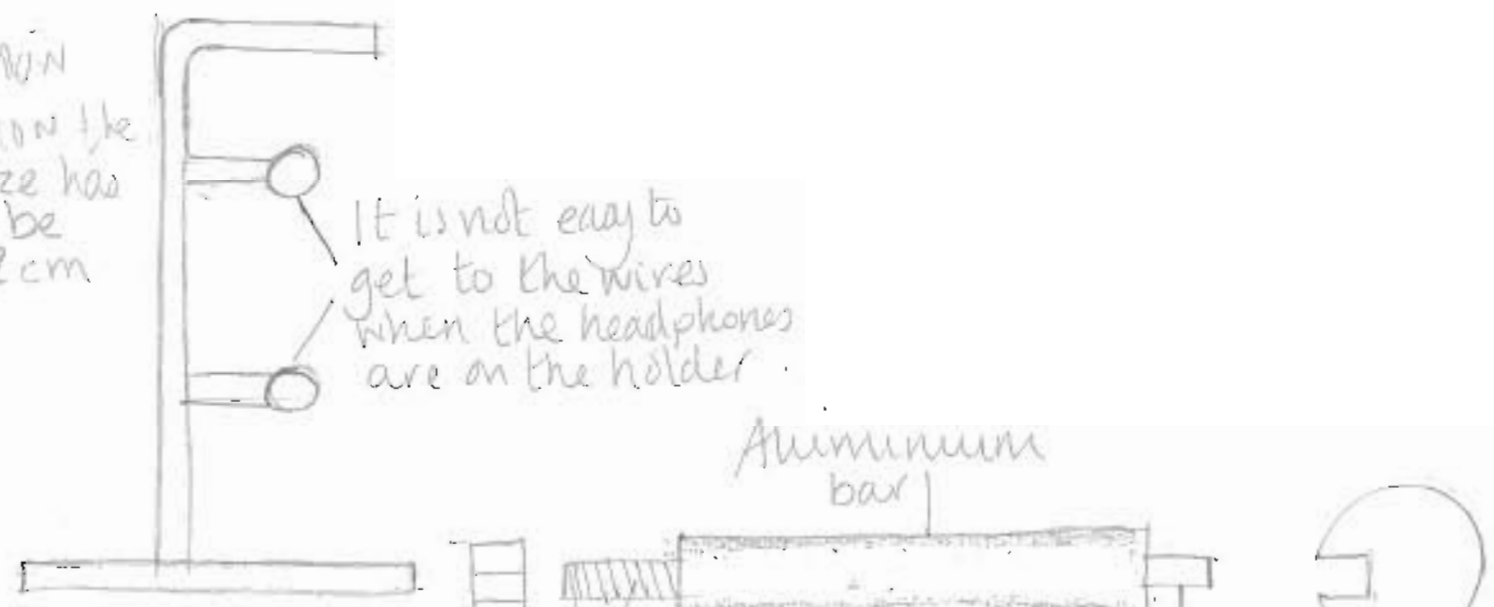 the
has
be
2cm
It is not easy to
get to the wires
when the headphones
are on the holder.
Aluminium
bar